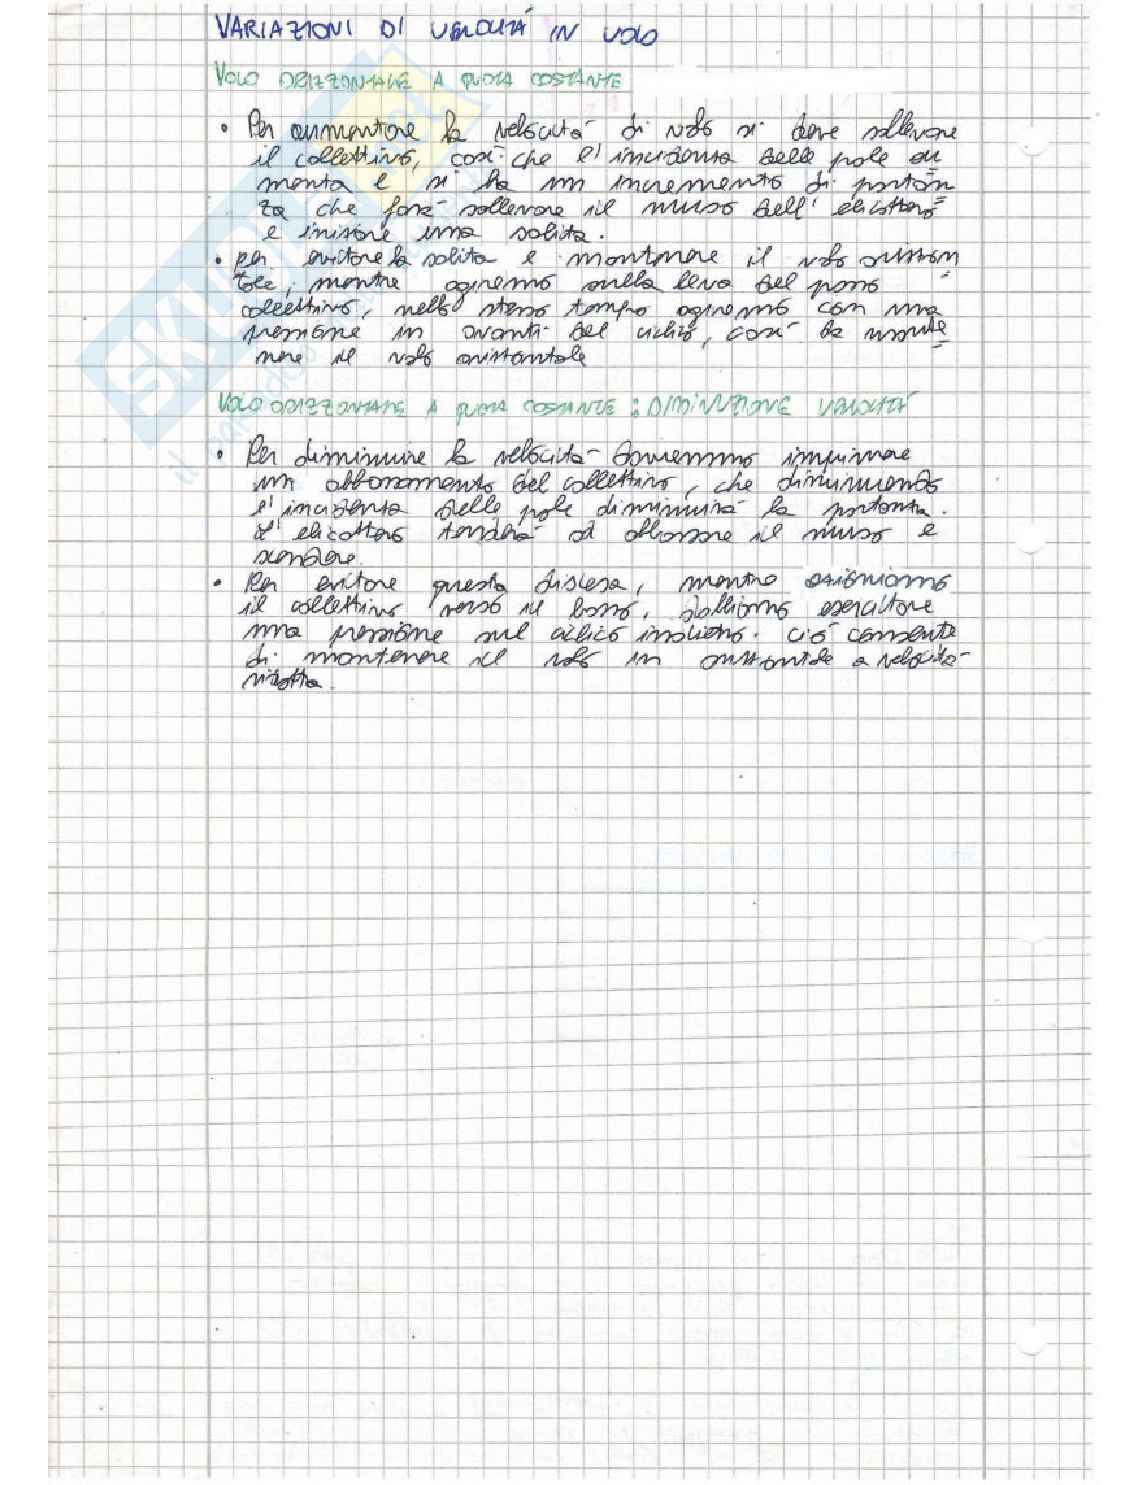 VARIAZIONI DI VELOCITÀ IN VOLO
VOLO ORIZZONTALE A QUOTA COSTANTE
• Per aumentare la velocità di volo si deve sollevare
il collettivo, così che l'incidenza delle pale au
menta e si ha un incremento di portan
za che farà sollevare il muso dell'elicottero
e iniziare una salita.
• per evitare la salita e mantenere il volo orizzon
tale, mentre agiremo sulla leva del passo
collettivo, nello stesso tempo agiremo con una
pressione in avanti del ciclico, così da
nere il volo orizzontale
VOLO ORIZZONTALE A QUOTA COSTANTE : DIMINUZIONE VELOCITÀ
• Per diminuire la velocità dovremmo imprimere
un abbassamento del collettivo, che diminuendo
l'incidenza delle pale diminuirà la portanza.
L'elicottero tenderà ad abbassare il muso e
scendere.
• Per evitare questa discesa, mentre
il collettivo verso il basso, dobbiamo esercitare
una pressione sul ciclico indietro. ciò consente
di mantenere il volo in orizzontale a velocità
ridotta.
SKUOLA